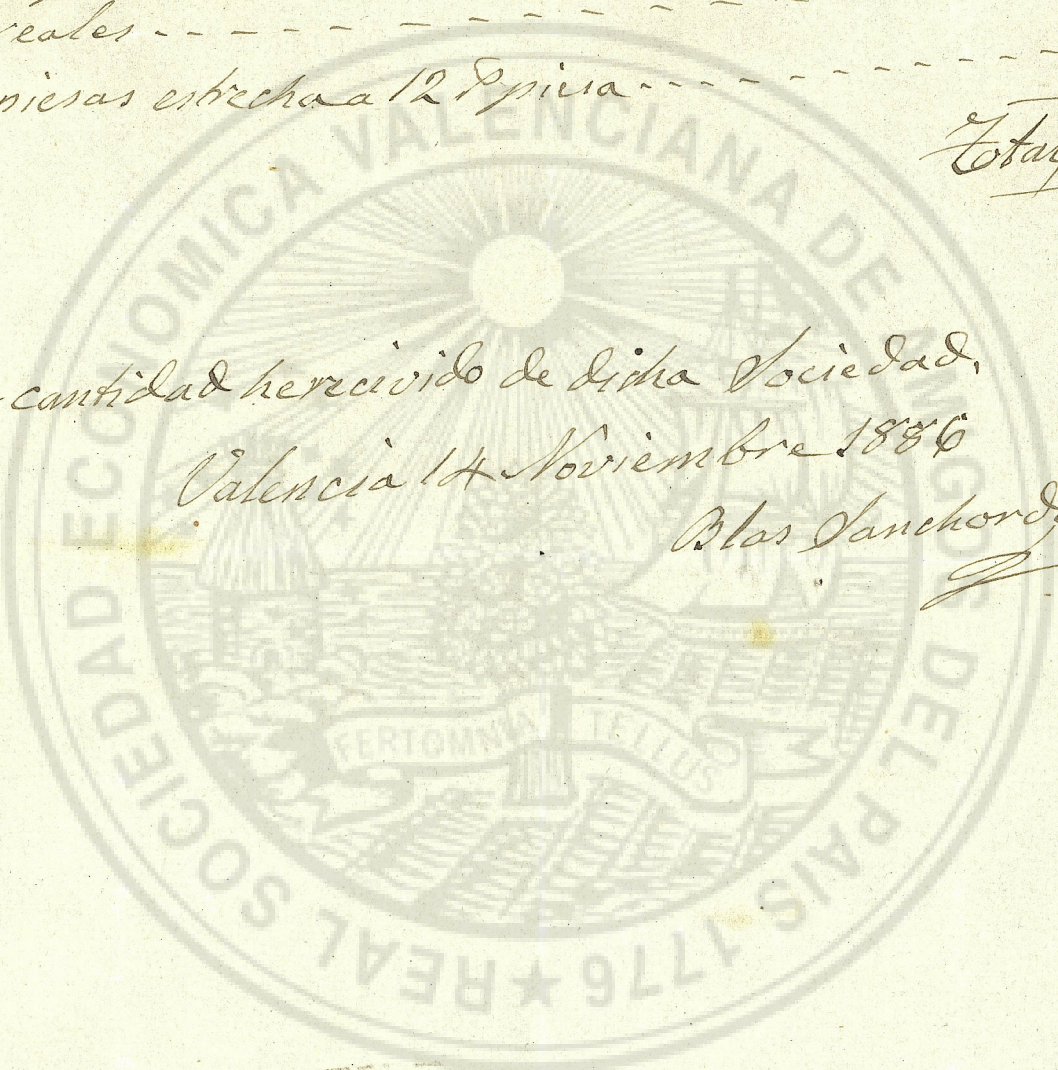 reales
piesas estrecha a 12 Rs piesa
Total
cantidad herecivido de dicha Sociedad.
Valencia 14 Noviembre 1886
Blas Sanchord
REAL SOCIEDAD ECONOMICA VALENCIANA DE AMIGOS DEL PAIS 1776
FERT OMNIA TELLUS